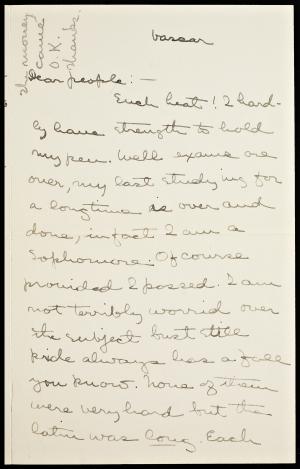 The money
came
O.K.
Thanks.
Vassar
Dear people: —
Such heat! I hard-
ly have strength to hold
my pen. Well exams are
over, my last studying for
a longtime is over and
done, in fact I am a
Sophomore. Of course
provided I passed. I am
not terribly worrid over
the subject but still
pride always has a fall
you know. None of them
were very hard but the
latin was long. Each